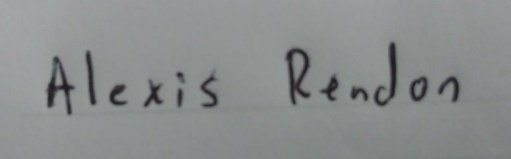 Alexis Rendon